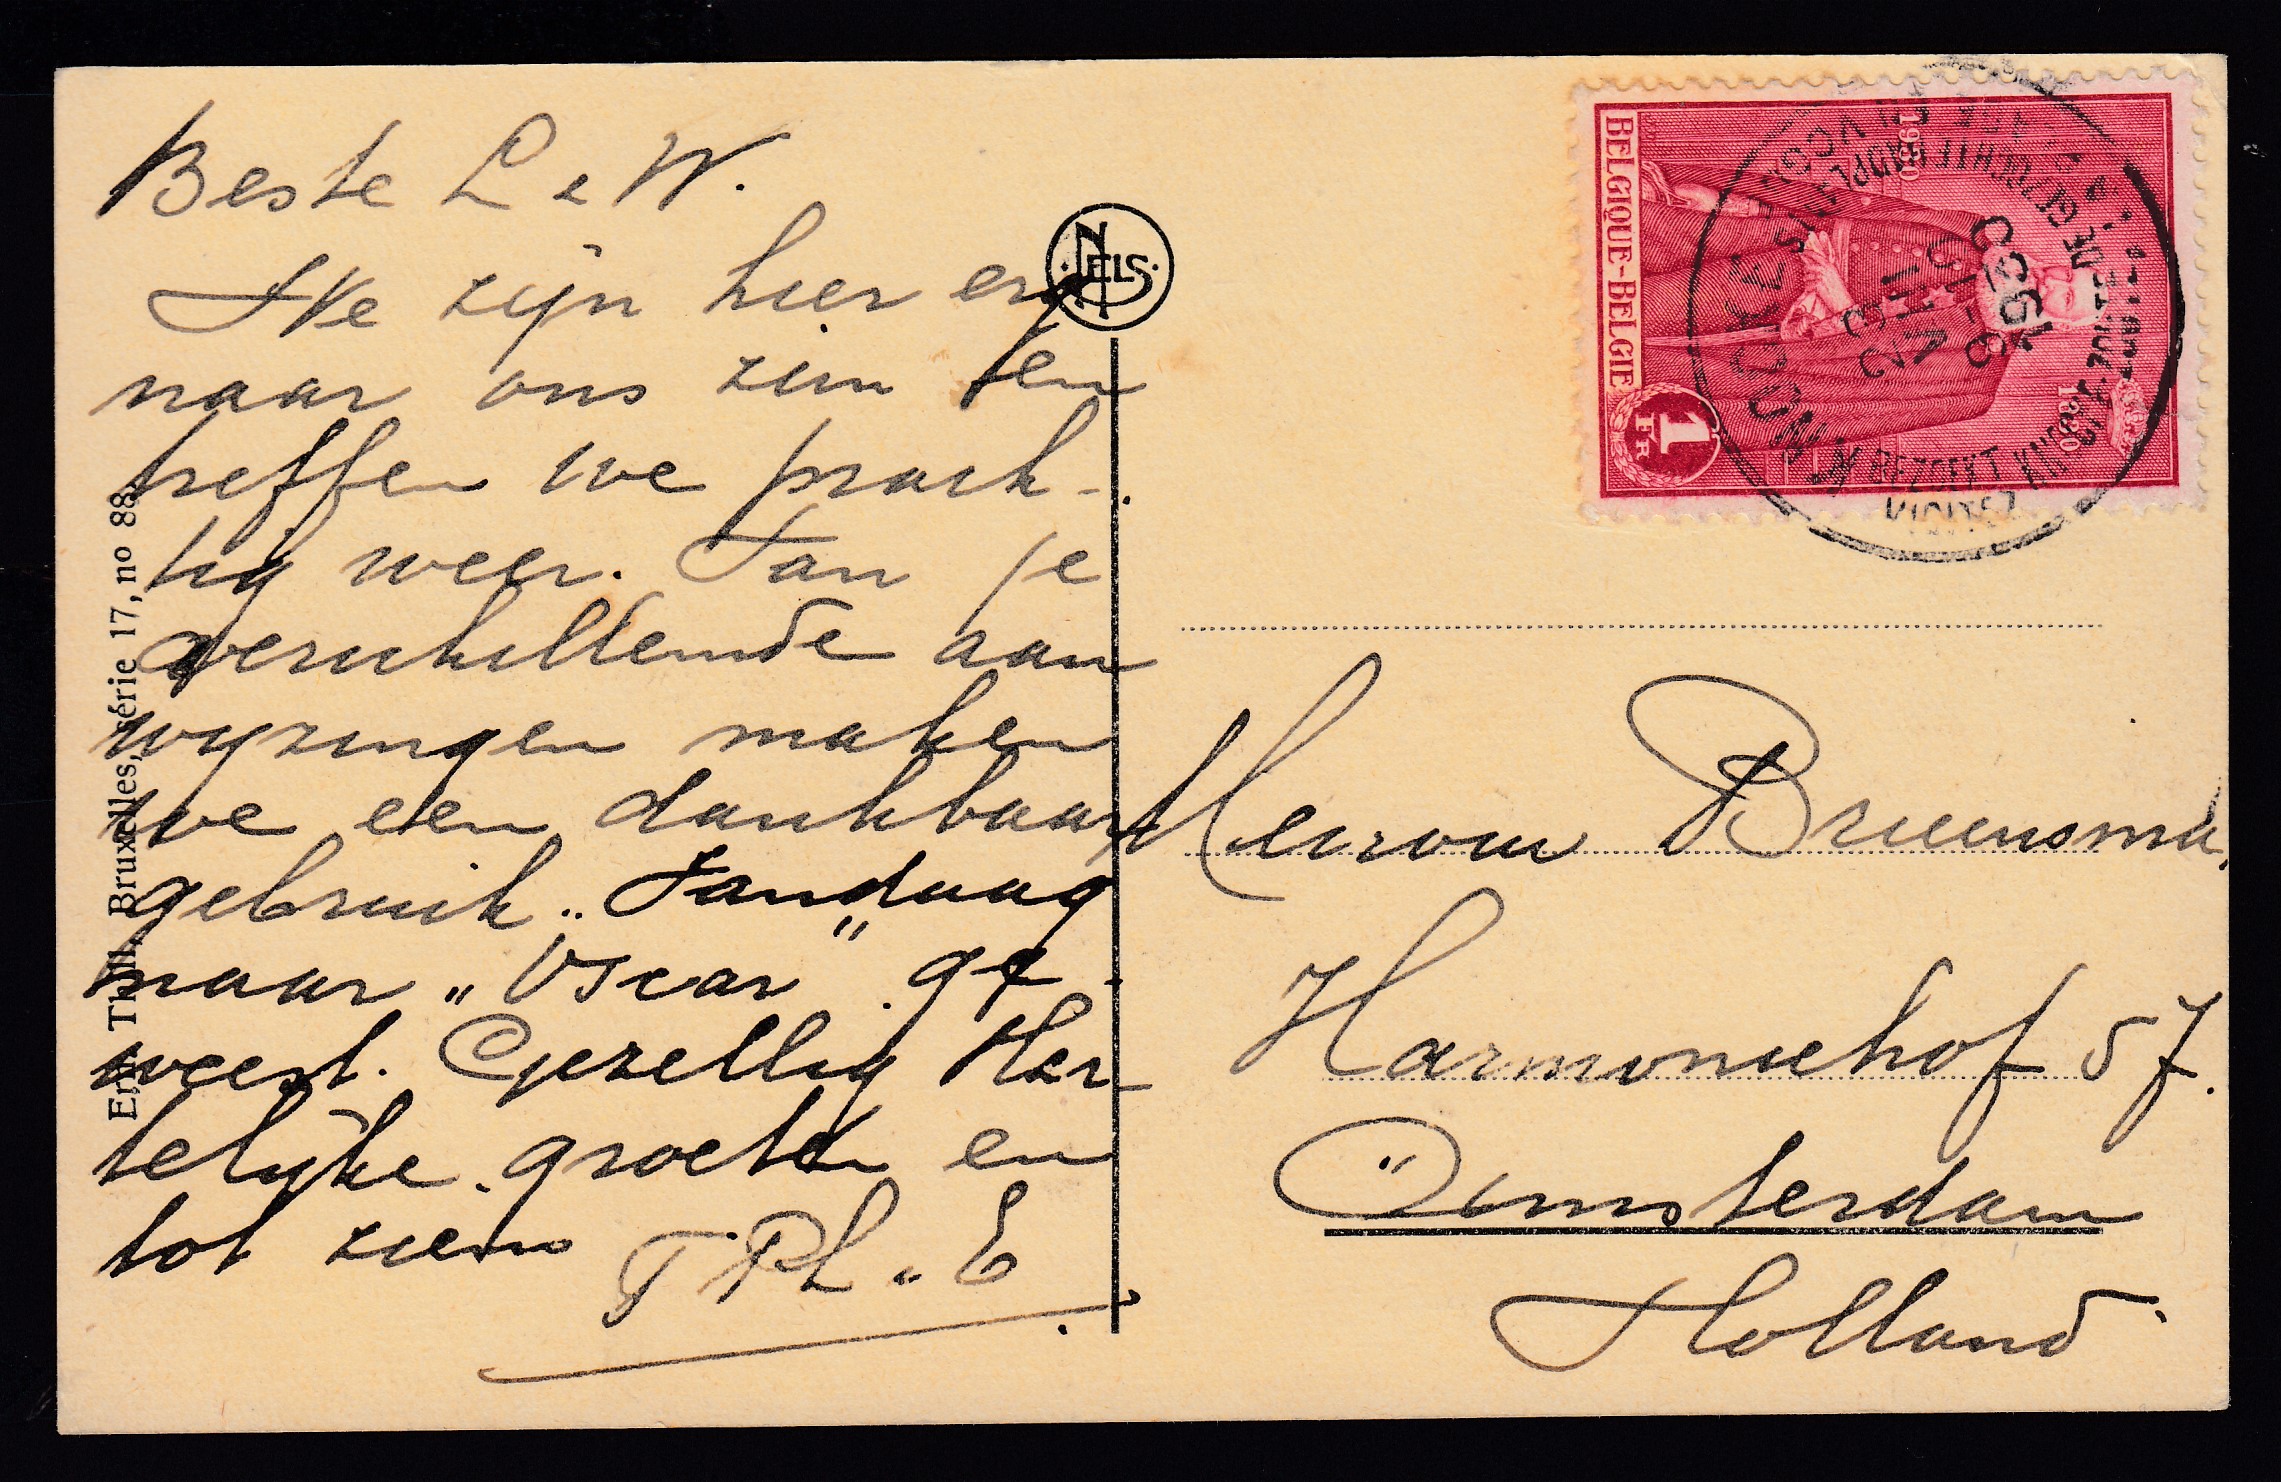 Beste L & W.
We zijn hier erg
naar ons zin en
treffen we prach-
tig weer. Van je
verschillende aan
wyzingen maken
we een dankbaar
gebruik. Vandaag
naar "Oscar" ge-
weest. Gezellig Har-
telijke groeten en
tot ziens
NELS
Ern. Thill, Bruxelles, série 17, no 88.
BELGIQUE-BELGIE
1 FR
1930
KNOCKE
1930
BEZOEKT
VISITEZ
Mevrouw Bruensma.
Harmoniehof 57.
Amsterdam
Holland